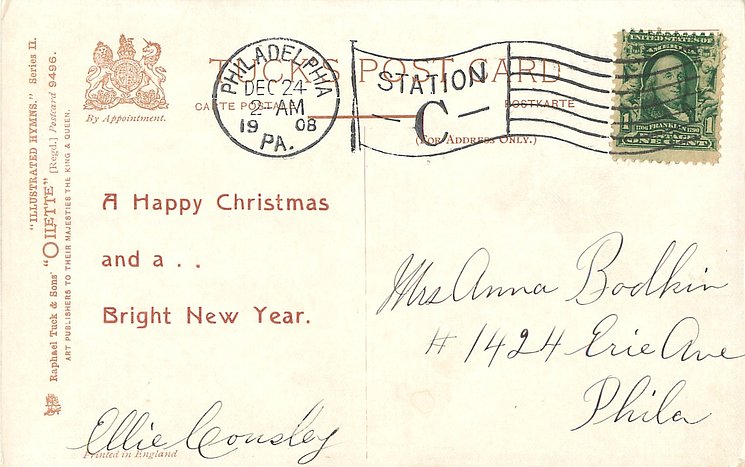 "ILLUSTRATED HYMNS." Series II.
Raphael Tuck & Sons' "OILETTE" [Regd.] Postcard 9496.
ART PUBLISHERS TO THEIR MAJESTIES THE KING & QUEEN.
By Appointment.
TUCK'S POST CARD
CARTE POSTALE
POSTKARTE
(FOR ADDRESS ONLY.)
PHILADELPHIA
DEC 24
2-AM
1908
PA.
STATION
C
UNITED STATES OF
AMERICA
1706 FRANKLIN 1790
1 ONE CENT 1
A Happy Christmas
and a . .
Bright New Year.
Mrs Anna Bodkin
# 1424 Erie Ave
Phila
Ellie
Printed in England